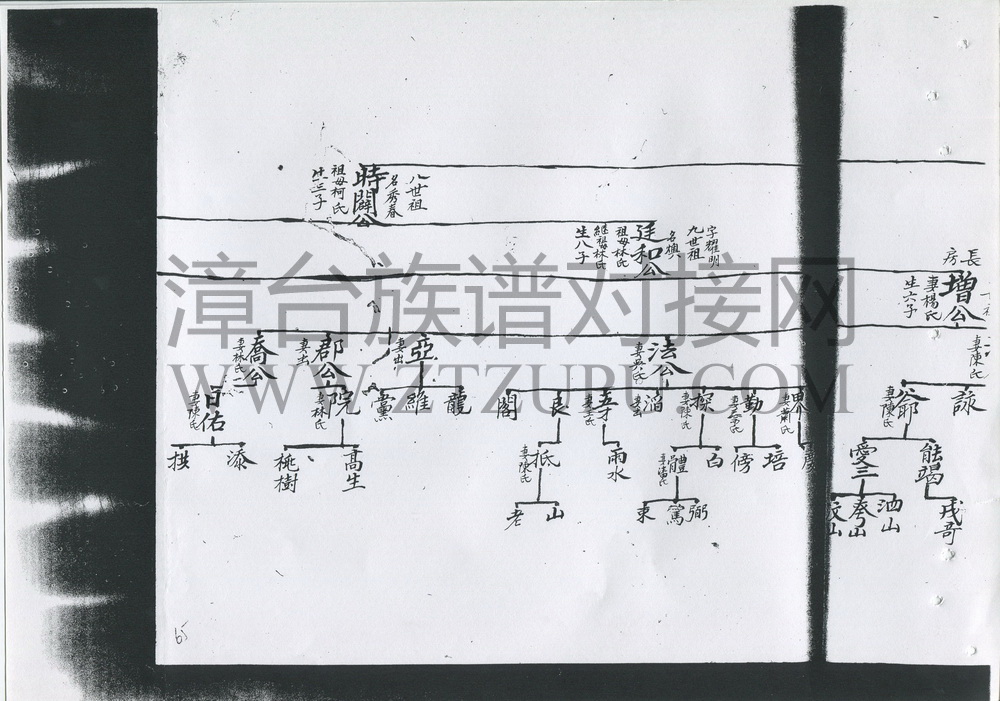 八世祖
名秀春
時闢公
祖母柯氏
生三子
字耀明
九世祖
名煥
廷和公
祖母林氏
繼祖母林氏
生八子
長房
增公
妻楊氏
生六子
漳台族谱对接网
WWW.ZTZUPU.COM
妻陳氏
詠
爺
妻陳氏
法公
妻吳氏
亞
妻出
郡公
妻出
喬公
妻林氏
妻蕭氏
勤
探
妻陳氏
五才
良
閣
龍
維
黨
院
妻林氏
日佑
妻陳氏
能竭
愛三
培
傍
白
體
雨水
抵
妻陳氏
高生
桃樹
添
拱
戌哥
泗山
奉山
山
弼
篤
東
山
老
65